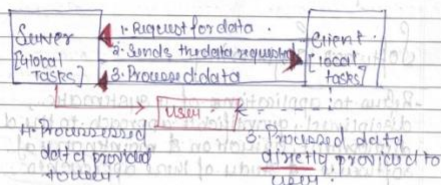 Server
[Global
Tasks]
1. Request for data.
2. Sends the data requested
3. Processed data
Client
[local
tasks]
User
4. Processessed
data provided
to user.
3. Processed data
directly provided to
user.